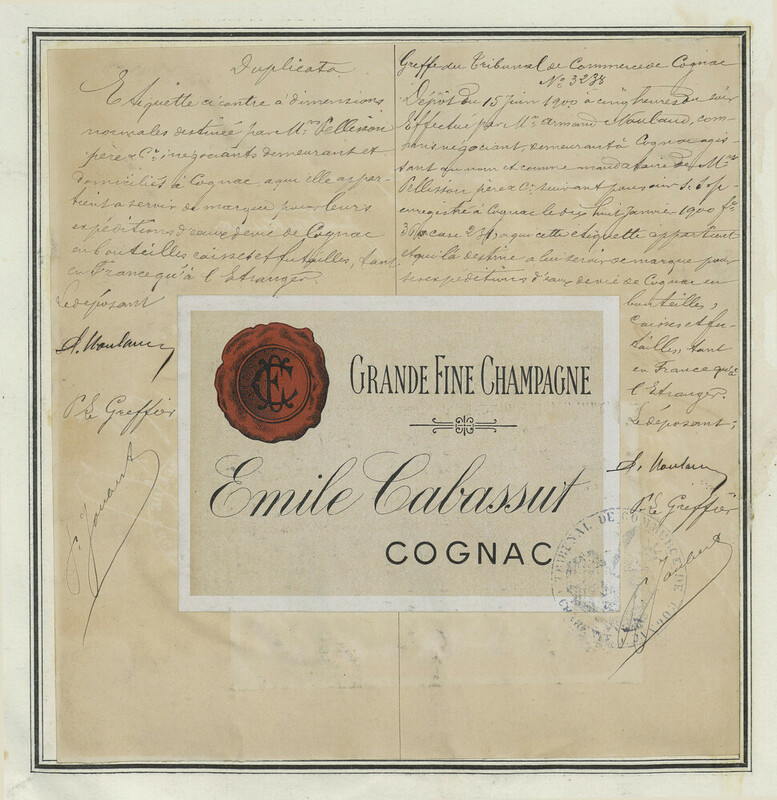 Duplicata
Etiquette ci contre à dimensions
normales destinée par Mrs Pellisson
père & Cie, négociants demeurant et
domiciliés à Cognac a qui elle appar-
tient a servir de marque pour leurs
expéditions d'eaux de vie de Cognac
en bouteilles caisses et futailles, tant
en France qu'à l'Etranger.
Le déposant
A. Moulaud
Pr Le Greffier
Greffe du Tribunal de Commerce de Cognac
No 3238
Dépôt du 15 Juin 1900 à cinq heures du soir
Effectué par Mr Armand Moulaud, com-
négociant, demeurant à Cognac agis-
sant au nom et comme mandataire de Mrs
Pellisson père & Cie suivant pouvoir
enregistré à Cognac le dix huit Janvier 1900 fo
case que cette etiquette appartient
et qu'il la destine a leur servir de marque pour
ses expéditions d'eaux de vie de Cognac en
bouteilles,
caisses et fu-
tailles, tant
en France qu'à
l'Etranger.
Le déposant,
A. Moulaud
Pr Le Greffier
EC
GRANDE FINE CHAMPAGNE
Emile Cabassut
COGNAC
TRIBUNAL DE COMMERCE DE COGNAC
CHARENTE